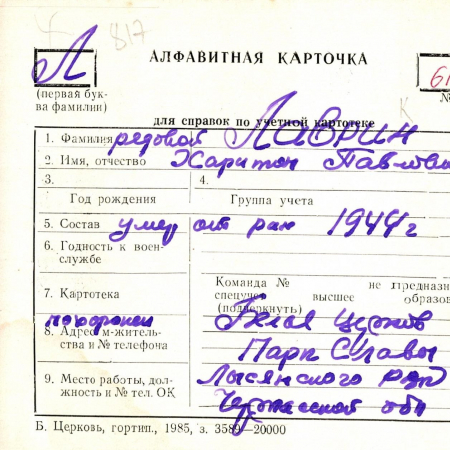 817
Л
АЛФАВИТНАЯ КАРТОЧКА
(первая бук-
ва фамилии)
№
для справок по учетной картотеке
1. Фамилия редовой Лаврин
2. Имя, отчество Харитон
3.
4.
Год рождения
Группа учета
5. Состав умер от ран 1944 г
6. Годность к воен-
службе
Команда № не предназн
7. Картотека
спецуче высшее образов
(подчеркнуть)
похоронен Белая Церков
8. Адрес м-житель-
ства и № телефона
Парк Славы
9. Место работы, дол-
жность и № тел. ОК
Лысянского р-на
Черкасской обл
Б. Церковь, гортип., 1985, з. 3589—20000